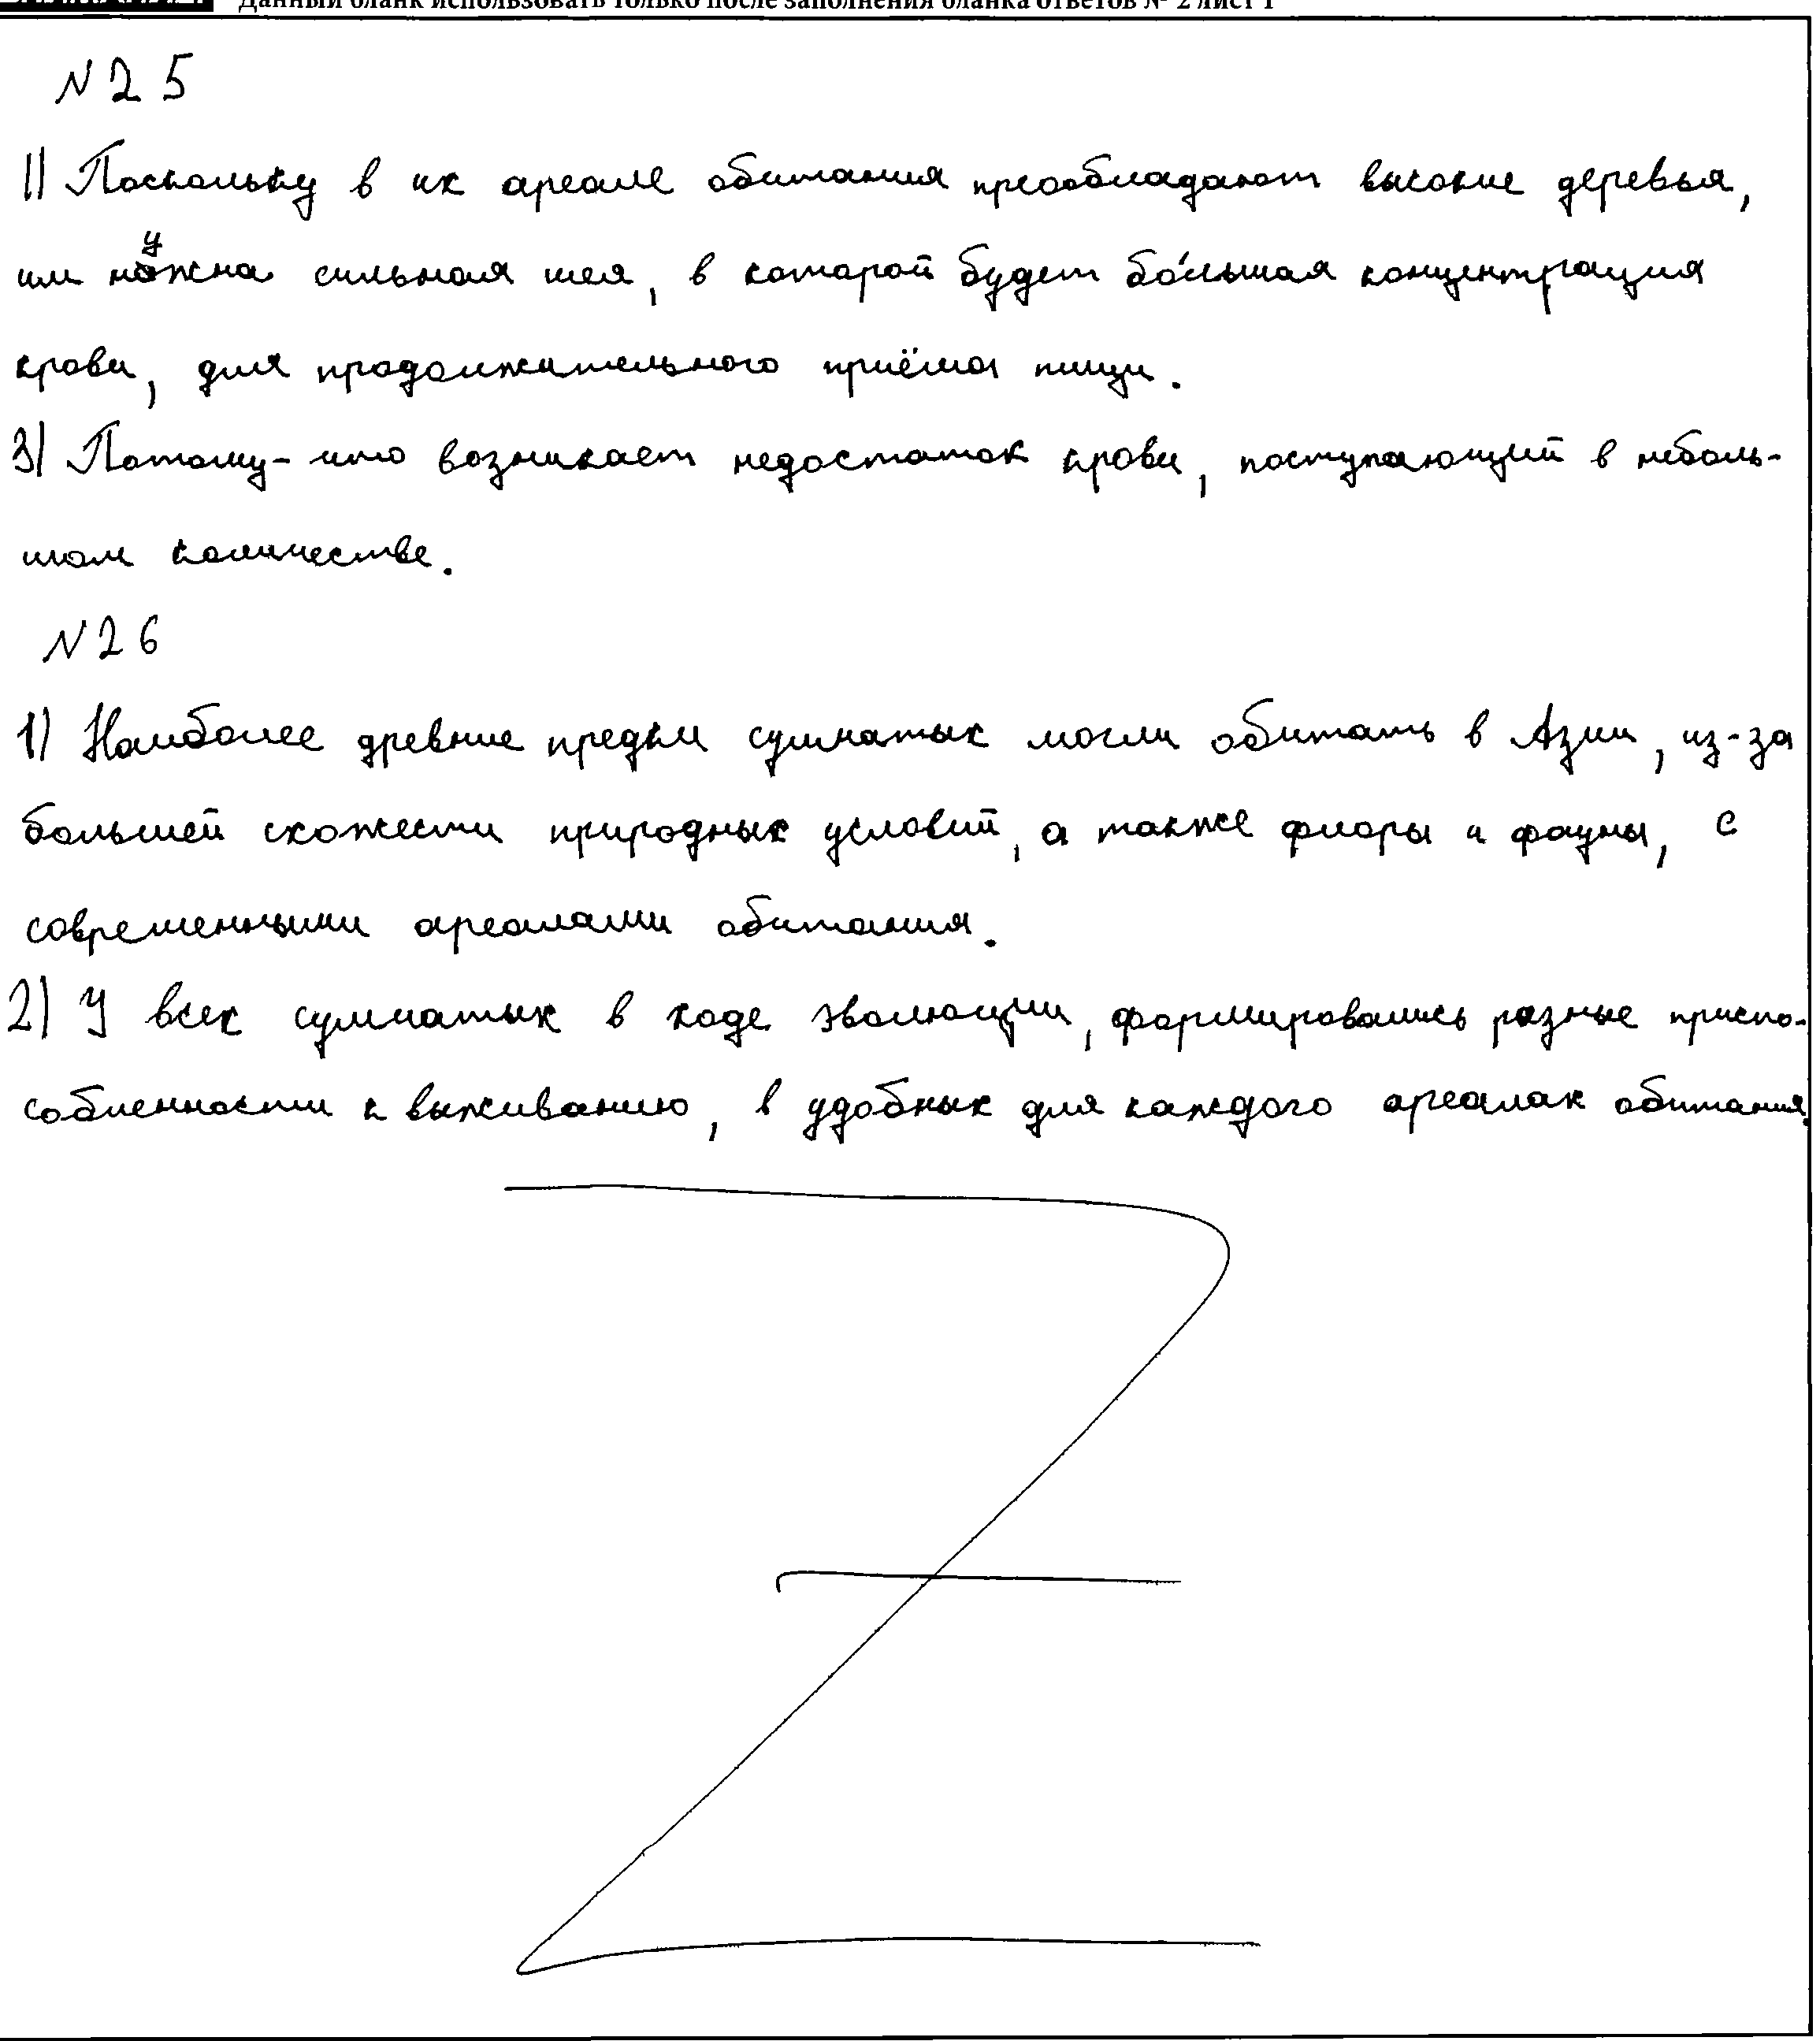 Данный бланк использовать только после заполнения бланка ответов № 2 лист 1
N25
1) Поскольку в их ареале обитания преобладают высокие деревья,
им нужна сильная шея, в которой будет бо́льшая концентрация
крови, для продолжительного приёма пищи.
3) Потому-что возникает недостаток крови, поступающий в неболь-
шом количестве.
N26
1) Наиболее древние предки сумчатых могли обитать в Азии, из-за
большей схожести природных условий, а также флоры и фауны, с
современными ареалами обитания.
2) У всех сумчатых в ходе эволюции, формировались разные приспо-
собленности к выживанию, в удобных для каждого ареалах обитания.